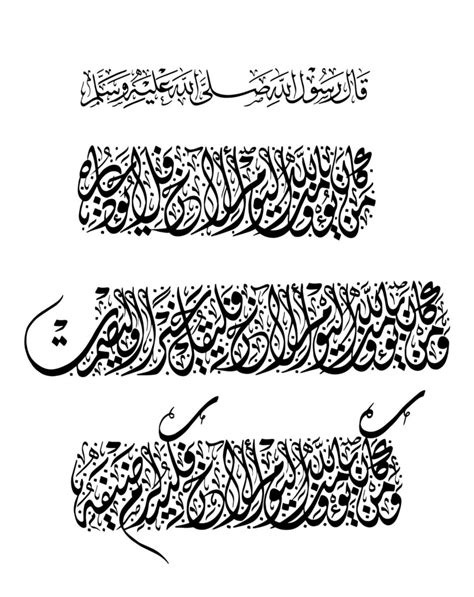 قال رسول الله صلى الله عليه وسلم
من كان يؤمن بالله واليوم الآخر فلا يؤذ جاره
ومن كان يؤمن بالله واليوم الآخر فليقل خيرا أو ليصمت
ومن كان يؤمن بالله واليوم الآخر فليكرم ضيفه